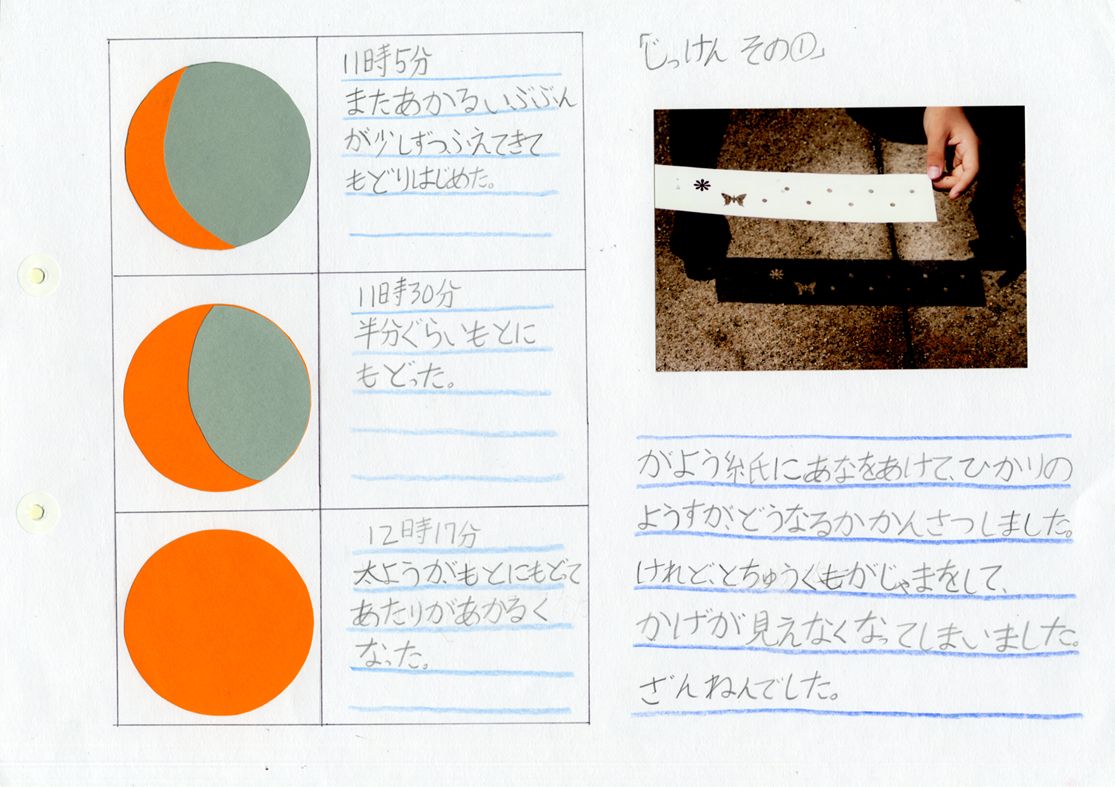 11時5分
またあかるいぶぶん
が少しずつふえてきて
もどりはじめた。
11時30分
半分ぐらいもとに
もどった。
12時17分
太ようが、もとにもどって
あたりがあかるく
なった。
「じっけん その①」
がよう紙にあなをあけて、ひかりの
ようすが、どうなるかかんさつしました。
けれど、とちゅうくもがじゃまをして、
かげが見えなくなってしまいました。
ざんねんでした。